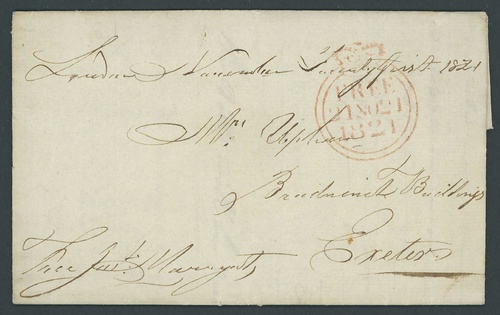 London November Twenty first 1821
FREE
21 NO 21
1821
Mrs Upham
Bradninch Buildings
Exeter
Free Jas. Marryatt